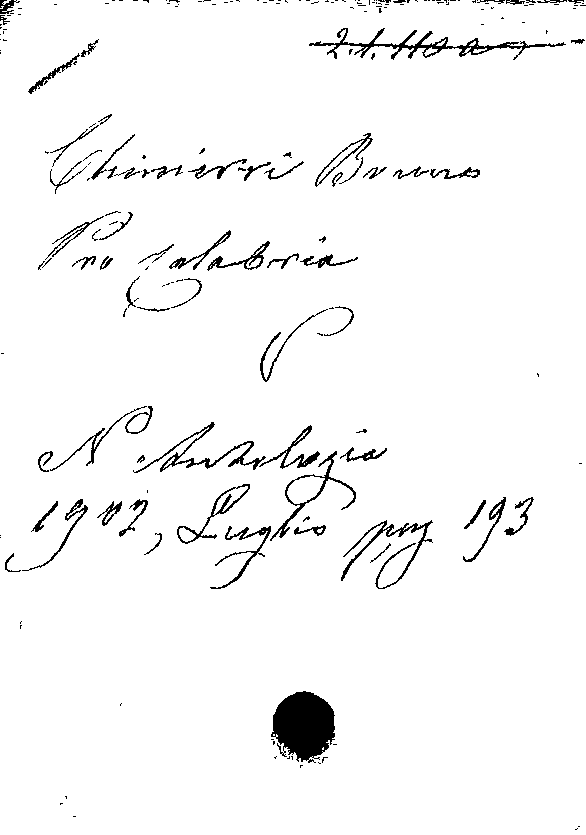 2.1.110 a
Chimirri Bruno
Pro Calabria
V
N Antologia
1902, Luglio pag 193